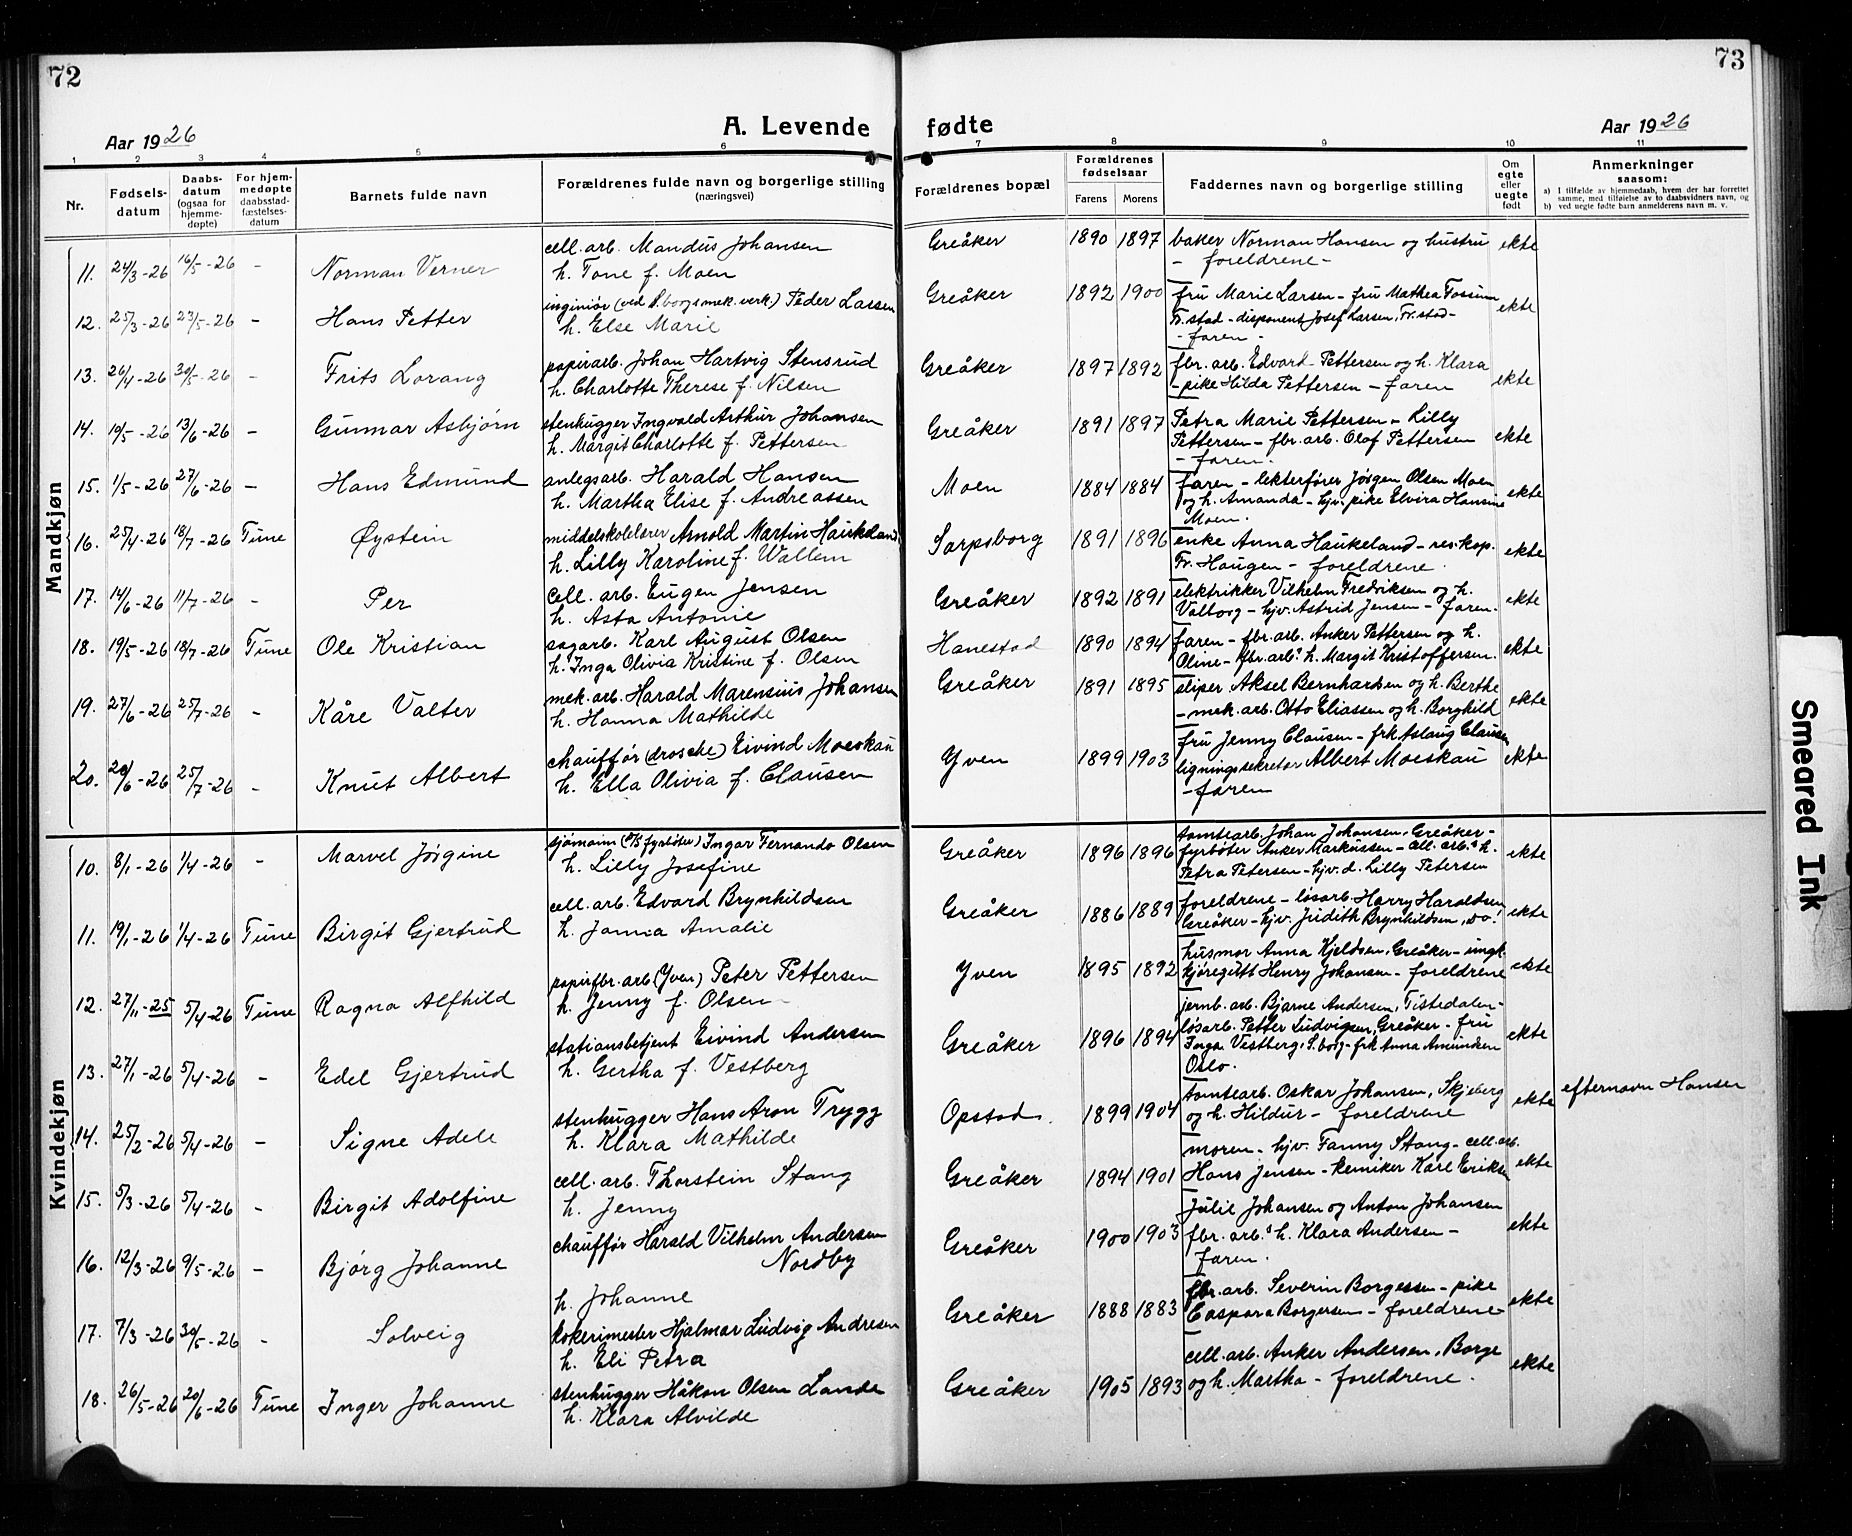 72
Aar 1926
A. Levende
1 2 3 4 5 6
Nr. | Fødsels-datum | Daabs-datum (ogsaa for hjemme-døpte) | For hjem-medøpte daabsstad-fæstelses-datum | Barnets fulde navn | Forældrenes fulde navn og borgerlige stilling (næringsvei)
Mandkjøn
11. 24/3-26 16/5-26 - Norman Verner cell. arb. Mandus Johansen
h. Tone f. Moen
12. 25/3-26 23/5-26 - Hans Petter inginiør (ved S.borgs mek. verk.) Peder Lassen
h. Else Marie
13. 26/4-26 30/5-26 - Frits Lorang papirarb. Johan Hartvig Stensrud
h. Charlotte Therese f. Nilsen
14. 10/5-26 13/6-26 - Gunnar Asbjørn stenhugger Ingvald Arthur Johansen
h. Margit Charlotte f. Pettersen
15. 1/5-26 27/6-26 - Hans Edmund anlegsarb. Harald Hansen
h. Martha Elise f. Andreassen
16. 25/4-26 18/7-26 Tune Øystein middelskolelærer Arnold Martin Haukeland
h. Lilly Karoline f. Wallem
17. 14/6-26 11/7-26 - Per cell. arb. Eugen Jensen
h. Asta Antonie
18. 19/5-26 18/7-26 Tune Ole Kristian sagarb. Karl August Olsen
h. Inga Olivia Kristine f. Olsen
19. 27/6-26 25/7-26 - Kåre Valter mek. arb. Harald Marensius Johansen
h. Hanna Mathilde
20. 20/6-26 25/7-26 - Knut Albert chauffør (drosche) Eivind Moeskau
h. Ella Olivia f. Clausen
Kvindekjøn
10. 8/1-26 1/4-26 - Marvel Jørgine sjømann (fyrbøter) Ingar Fernando Olsen
h. Lilly Josefine
11. 19/1-26 1/4-26 Tune Birgit Gjertrud cell. arb. Edvard Brynhildsen
h. Janna Amalie
12. 27/11-25 5/4-26 Tune Ragna Alfhild papirfbr. arb (Yven) Peter Pettersen
h. Jenny f. Olsen
13. 27/1-26 5/4-26 - Edel Gjertrud stationsbetjent Eivind Andersen
h. Gertha f. Vestberg
14. 25/2-26 5/4-26 - Signe Adele stenhugger Hans Aron Trygg
h. Klara Mathilde
15. 5/3-26 5/4-26 - Birgit Adolfine cell. arb. Thorstein Stang
h. Jenny
16. 12/3-26 9/5-26 - Bjørg Johanne chauffør Harald Vilhelm Andersen
Nordby
h. Johanne
17. 7/3-26 30/5-26 - Solveig kokerimester Hjalmar Ludvig Andresen
h. Eli Petra
18. 26/5-26 20/6-26 Tune Inger Johanne stenhugger Håkon Olsen Lande
h. Klara Alvilde
73
fødte
Aar 1926
7 8 9 10 11
Forældrenes bopæl | Forældrenes fødselsaar Farens Morens | Faddernes navn og borgerlige stilling | Om egte eller uegte født | Anmerkninger saasom:
a) I tilfælde av hjemmedaab, hvem der har forrettet samme, med tilføielse av to daabsvidners navn, og
b) ved uegte fødte barn anmelderens navn m. v.
Greåker 1890 1897 baker Norman Hansen og hustru ekte
- foreldrene -
Greåker 1892 1900 fru Marie Larsen - fru Mathea Fossum ekte
Fr.stad - disponent Josef Larsen, Fr.stad -
- faren -
Greåker 1897 1892 fbr. arb. Edvard Pettersen og h. Klara
- pike Hilda Pettersen - faren ekte
Greåker 1891 1897 Petra Marie Pettersen - Lilly
Pettersen - fbr. arb. Olaf Pettersen ekte
- faren.
Moen 1884 1884 faren - lekterfører Jørgen Olsen Moen
og h. Amanda - hjv. pike Elvira Hansine ekte
Moen.
Sarpsborg 1891 1896 enke Anna Haukeland - res. kap.
Fr. Haugen - foreldrene ekte
Greåker 1892 1891 elektrikker Vilhelm Fredriksen og h.
Valborg - hjv. Astrid Jensen - faren. ekte
Hanestad 1890 1894 faren - fbr. arb. Anker Pettersen og h.
Oline - fbr. arb.s h. Margit Kristoffersen. ekte
Greåker 1891 1895 sliper Aksel Bernhardsen og h. Berthe
- mek. arb. Otto Eliassen og h. Borghild ekte
Yven 1899 1903 fru Jenny Clausen - frk. Aslaug Clausen
ligningssekretær Albert Moeskau ekte
- faren
Greåker 1896 1896 tomtearb. Johan Johansen, Greåker -
fyrbøter Anker Markussen - cell. arb.s h. ekte
Petra Petersen - hjv. d. Lilly Petersen
Greåker 1886 1889 foreldrene - løsarb. Harry Haroldsen,
Greåker - hjv. Judith Brynhildsen, do. ekte
Yven 1895 1892 husmor Anna Kjeldsen, Greåker - ungk.
kjøregutt Henry Johansen - foreldrene ekte
Greåker 1896 1894 jernb. arb. Bjarne Andersen, Tistedalen -
løsarb. Petter Ludvigsen, Greåker - fru ekte
Inga Vestberg, S.borg - frk Anna Amundsen
Oslo.
Opstad 1899 1904 tomtearb. Oskar Johansen, Skjeberg
og h. Hildur - foreldrene ekte efternavn Hansen
Greåker 1894 1901 moren - hjv. Fanny Stang - cell. arb.
Hans Jensen - kemiker Karl Eriksen ekte
Greåker 1900 1903 Julie Johansen og Anton Johansen
fbr. arb.s h. Klara Andersen - ekte
faren.
Greåker 1888 1883 fbr. arb. Severin Borgersen - pike
Caspara Borgersen - foreldrene ekte
Greåker 1905 1893 cell. arb. Anker Andersen, Borge
og h. Martha - foreldrene. ekte
Smeared Ink